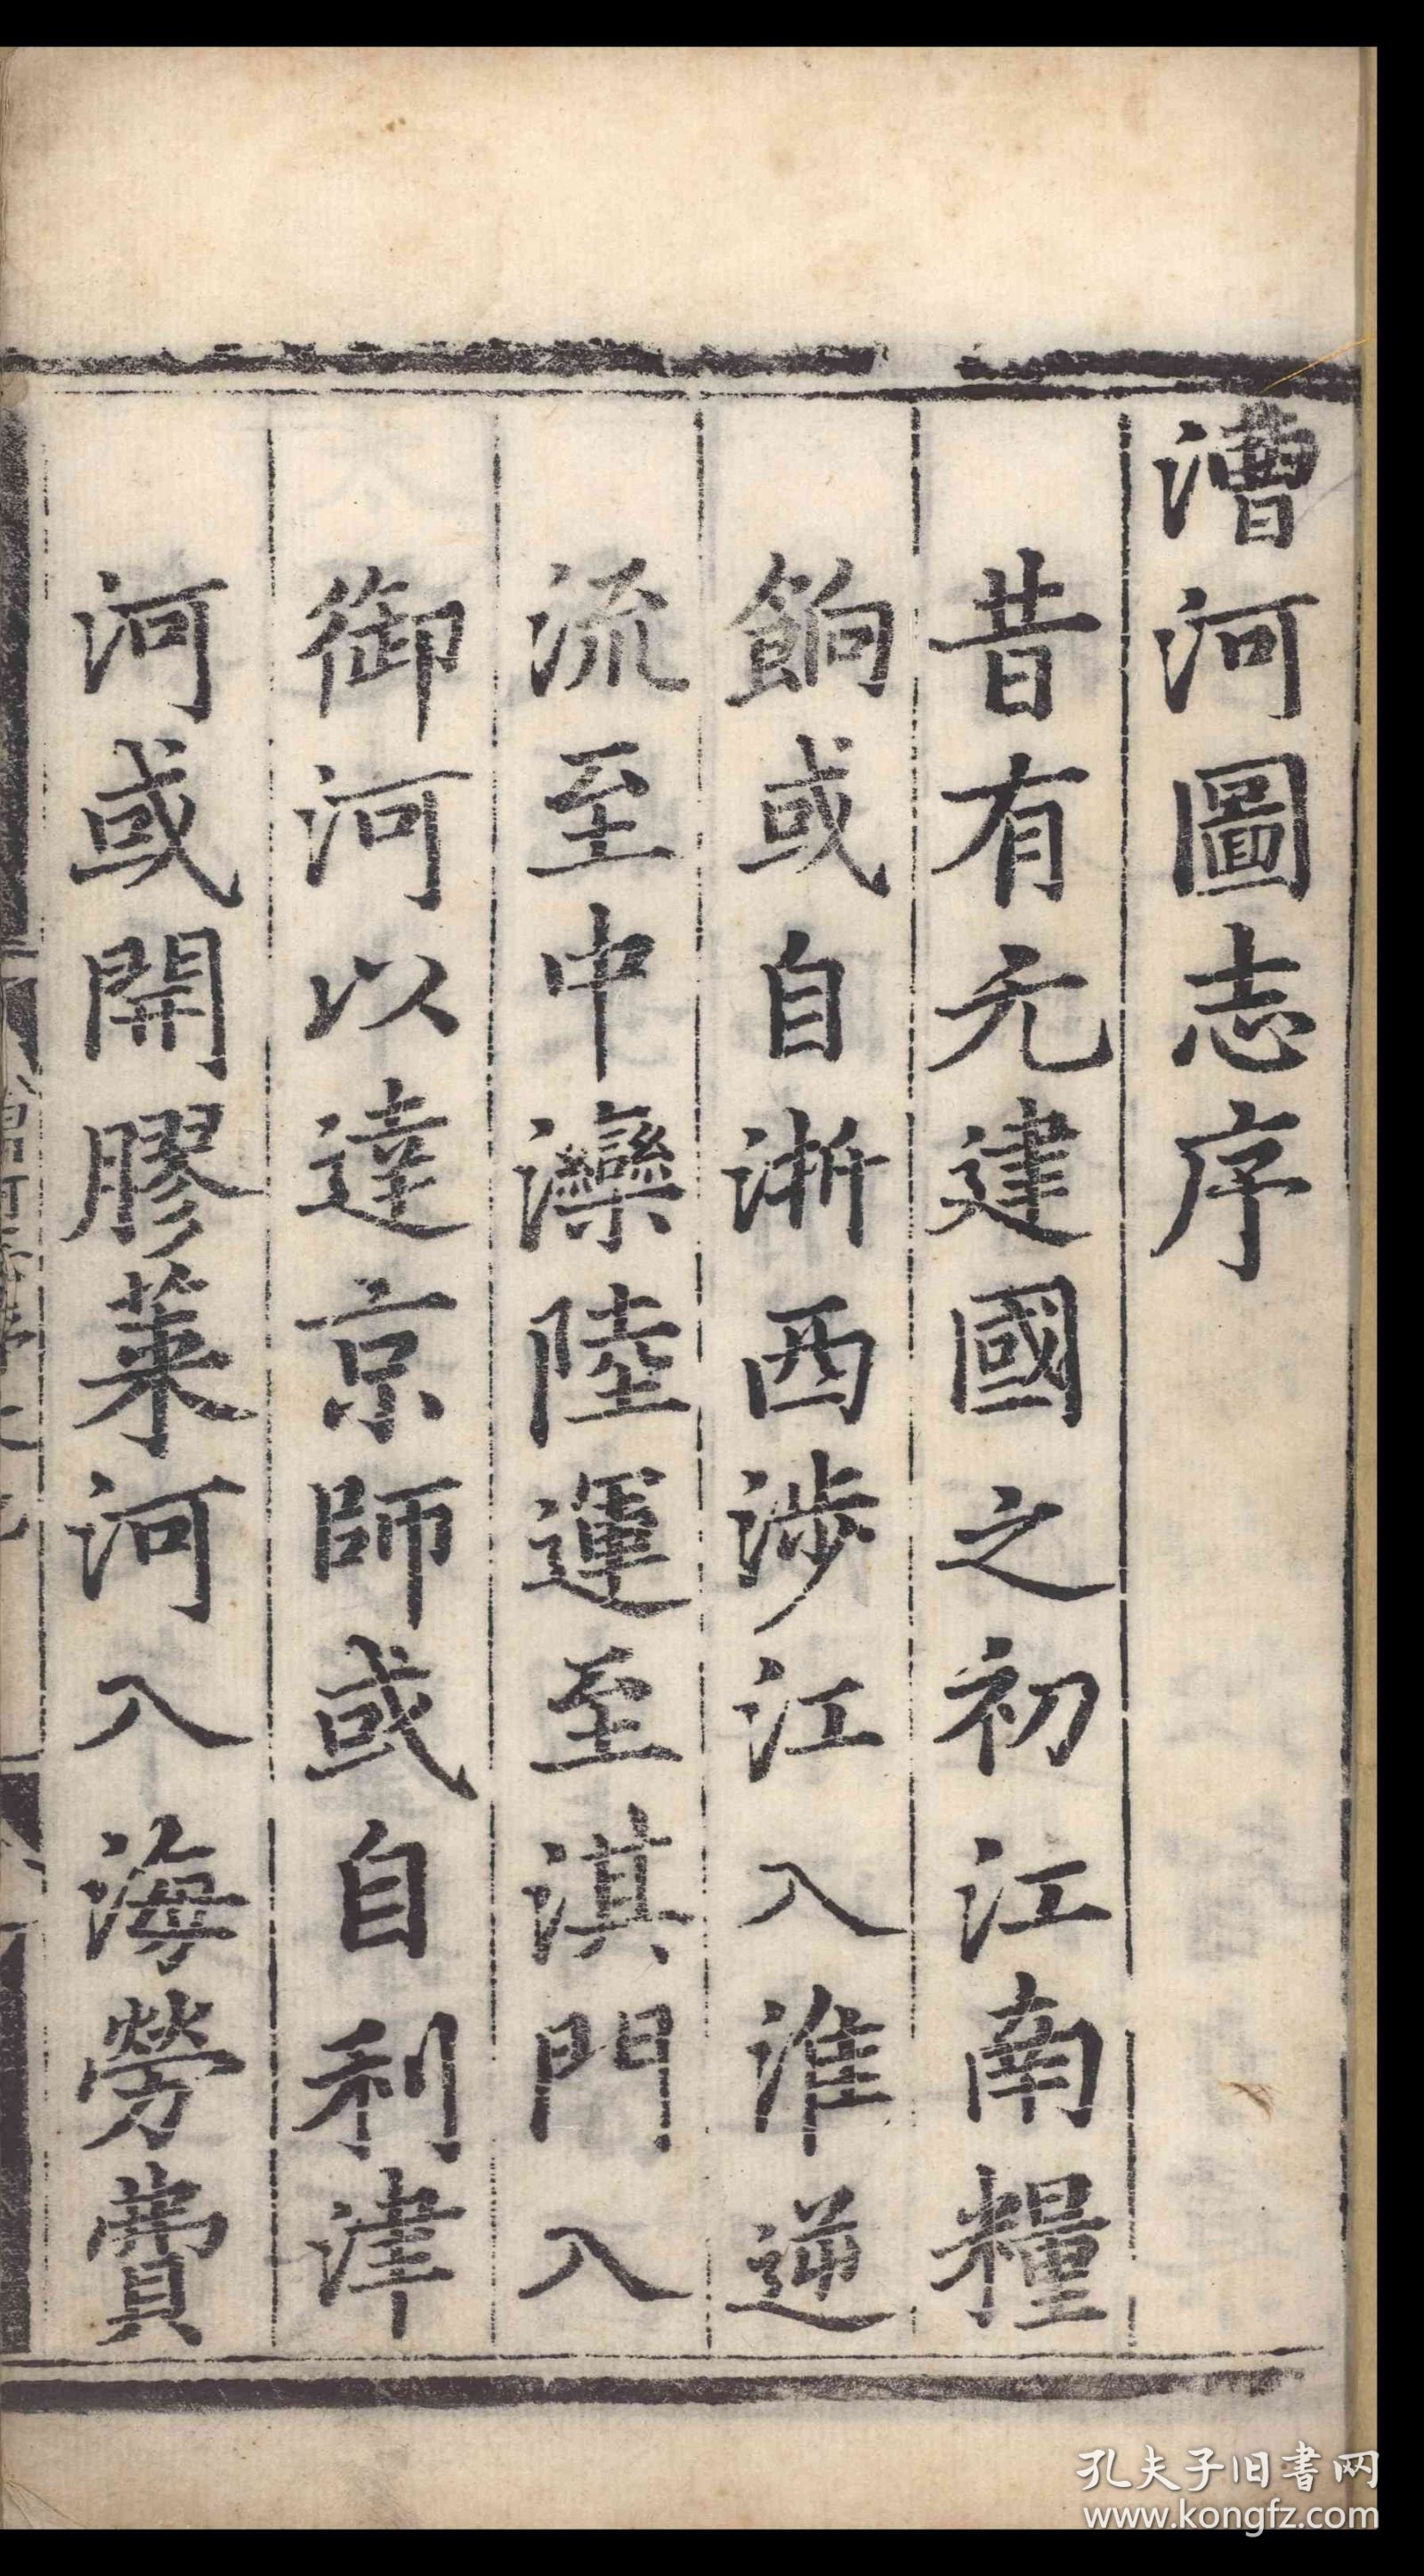 漕河圖志序
昔有元建國之初江南糧
餉或自浙西涉江入淮逆
流至中灤陸運至淇門入
御河以達京師或自利津
河或開膠萊河入海勞費
孔夫子旧书网
www.kongfz.com